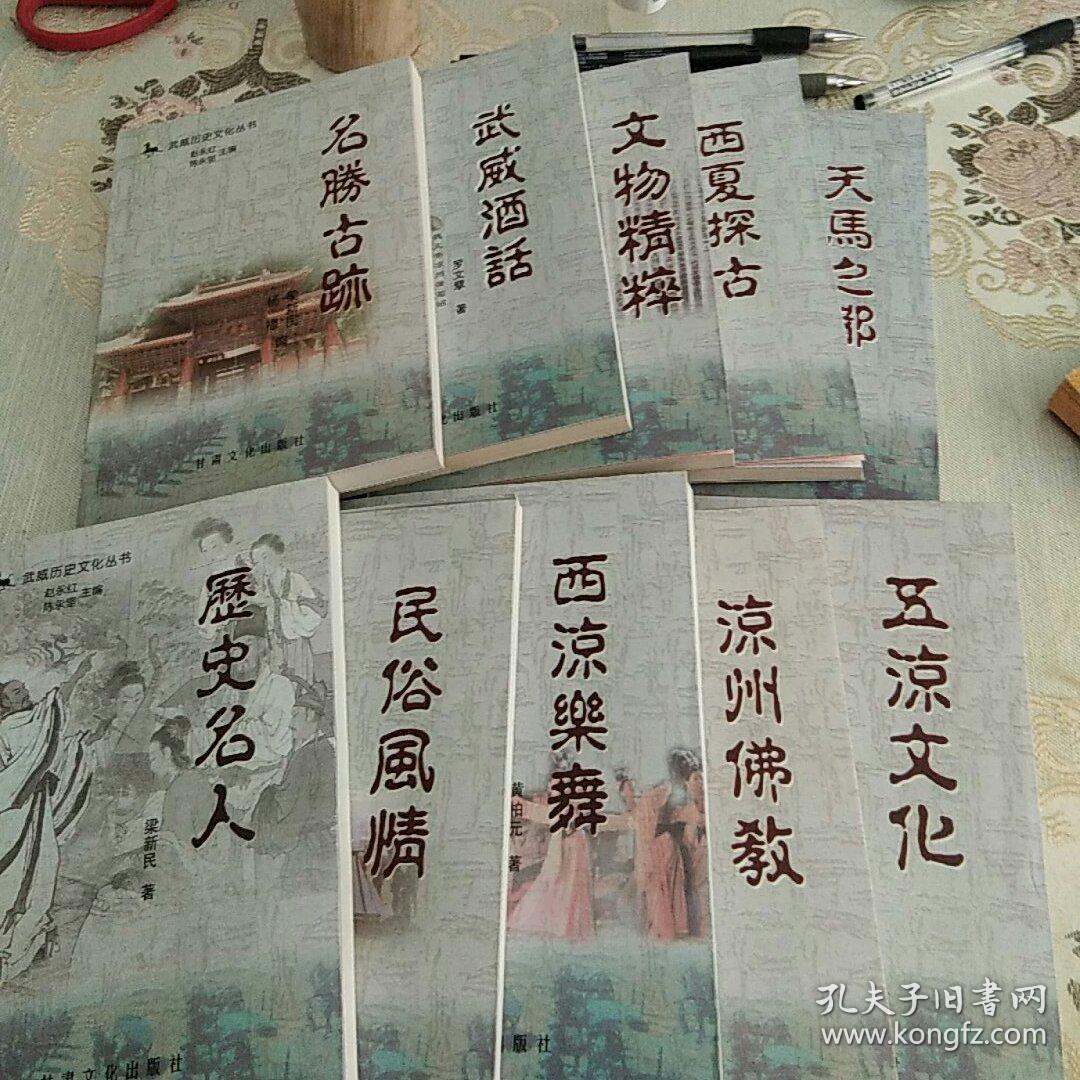 武威历史文化丛书
赵永红
陈永坚 主编
名勝古跡
甘肃文化出版社
武威酒話
罗文擘 著
化出版社
文物精粹
西夏探古
天馬之邦
武威历史文化丛书
赵永红
陈永坚 主编
歷史名人
梁新民 著
甘肃文化出版社
民俗風情
西涼樂舞
黄柏元 著
出版社
涼州佛教
五涼文化
孔夫子旧书网
www.kongfz.com